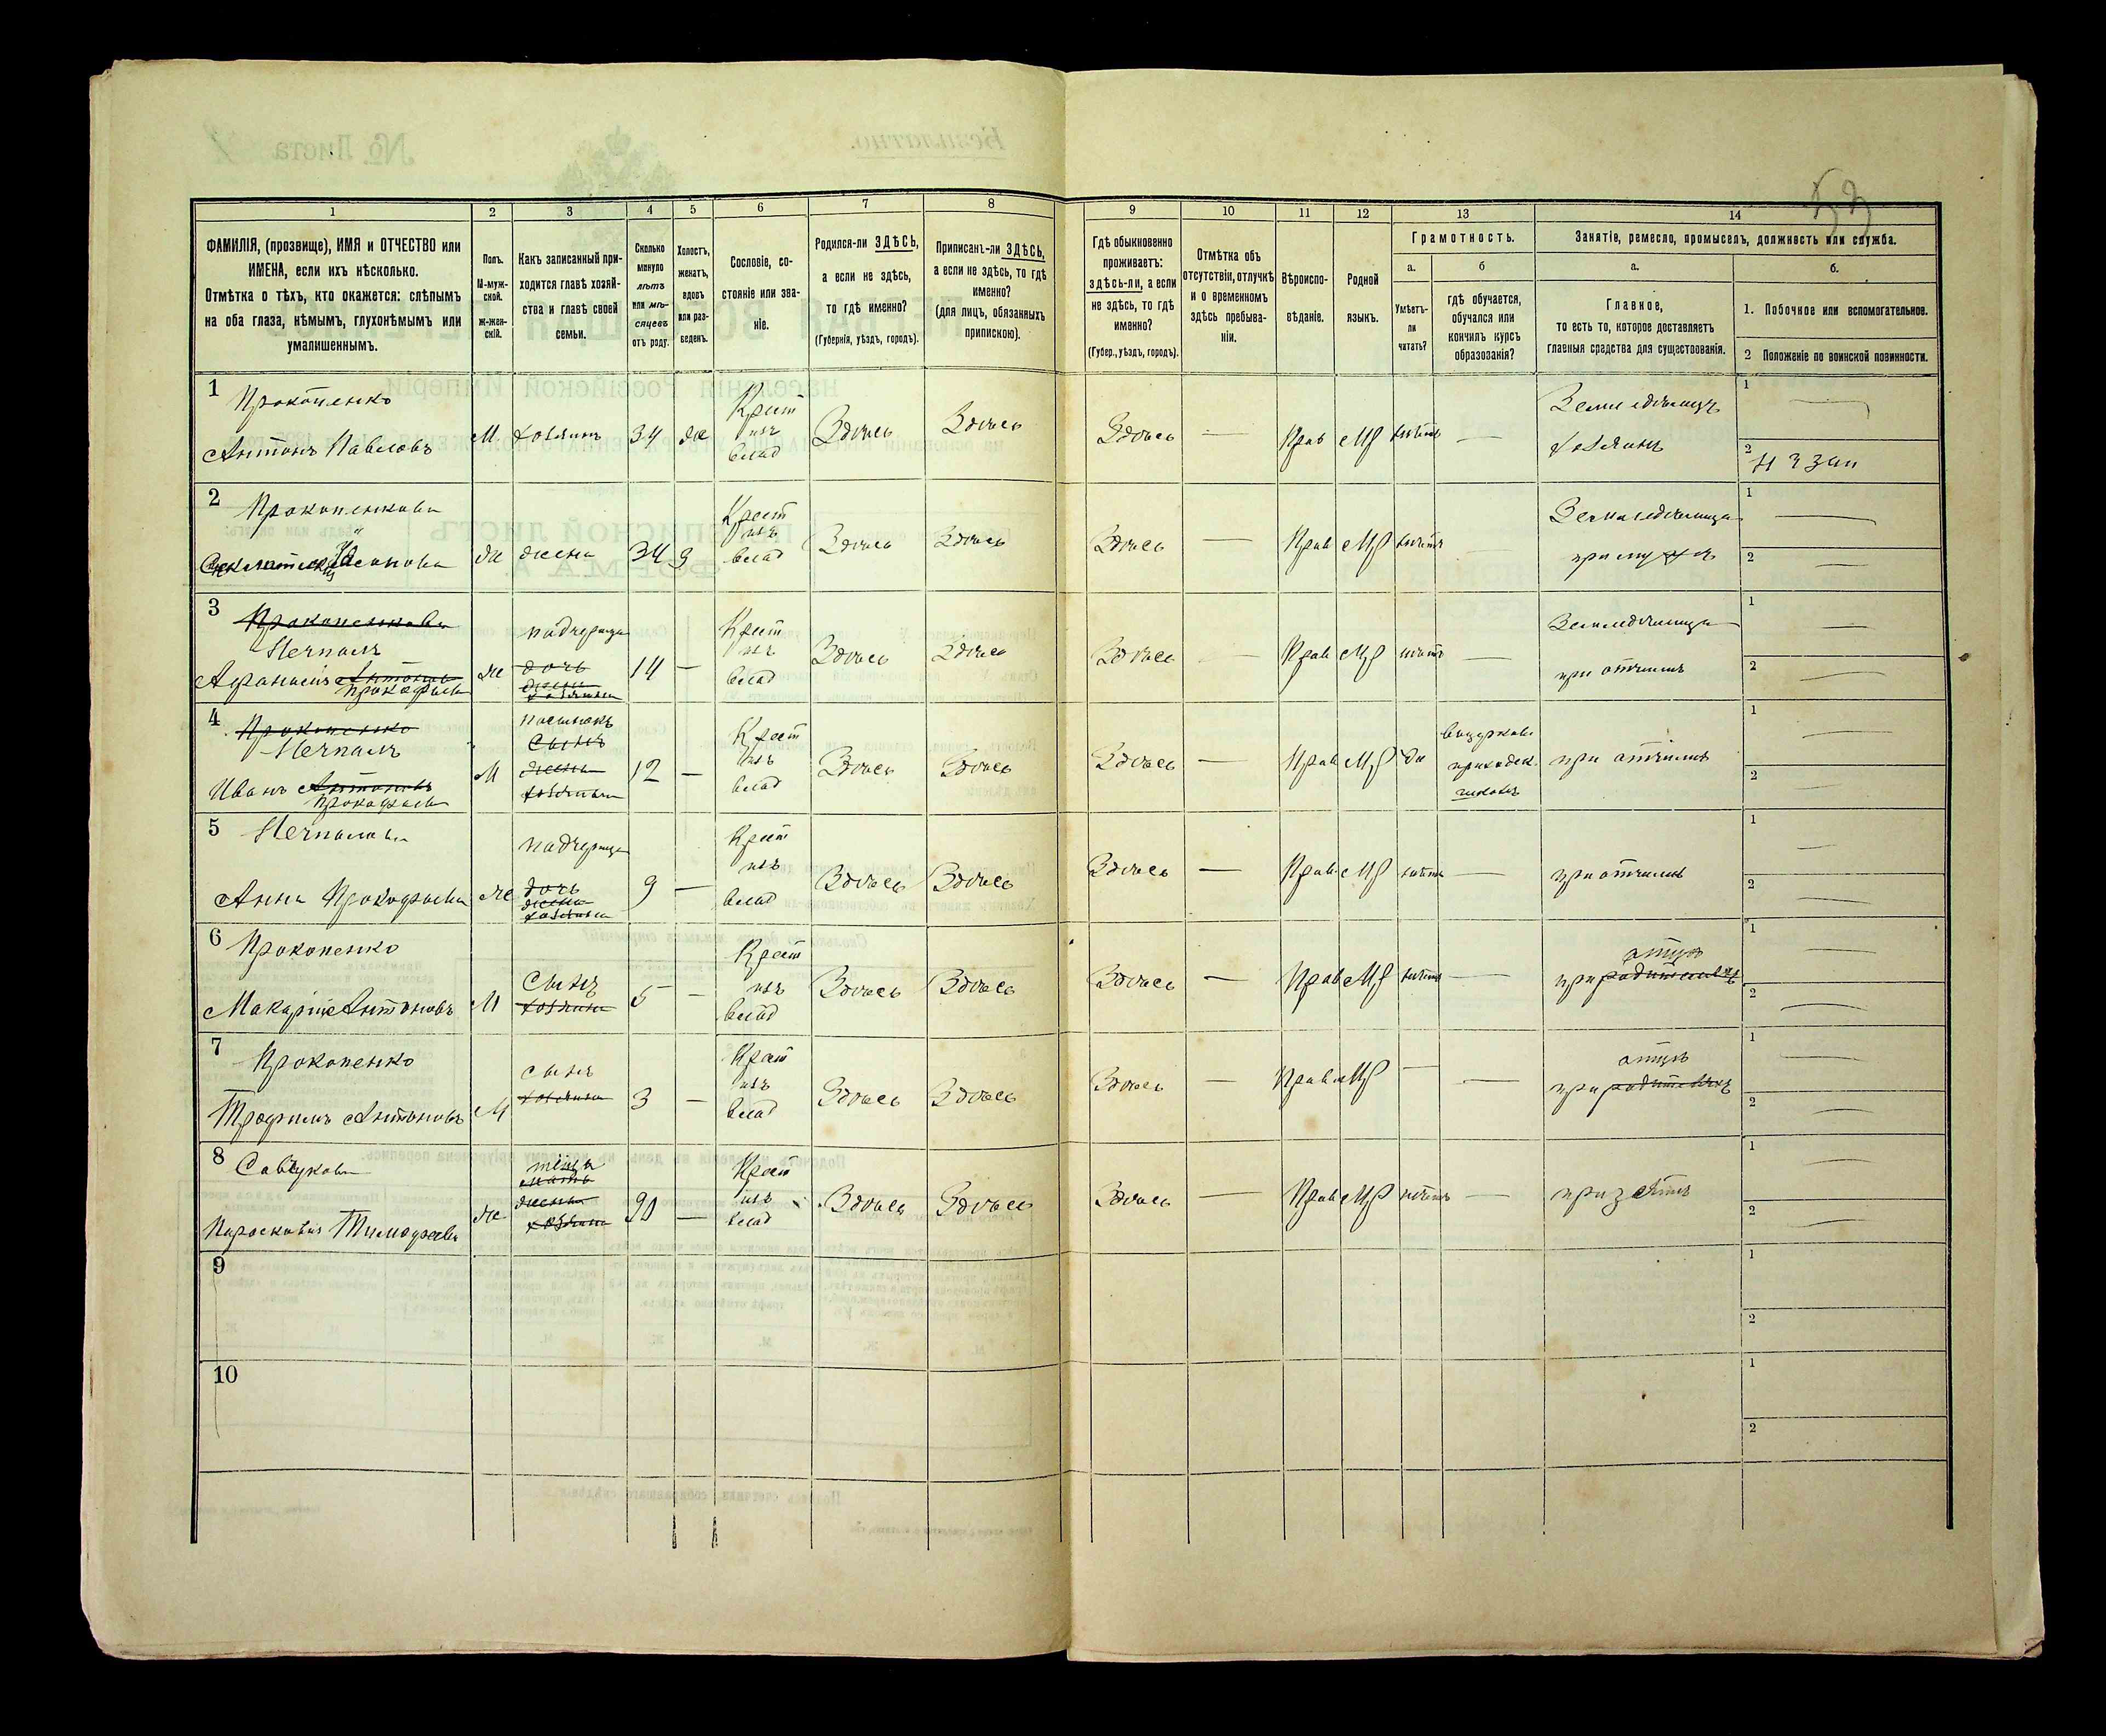 53
1 2 3 4 5 6 7 8 9 10 11 12 13 14
ФАМИЛІЯ, (прозвище), ИМЯ и ОТЧЕСТВО или
ИМЕНА, если ихъ нѣсколько.
Отмѣтка о тѣхъ, кто окажется: слѣпымъ
на оба глаза, нѣмымъ, глухонѣмымъ или
умалишеннымъ.
Полъ.
М-муж-
ской.
ж-жен-
скій.
Какъ записанный при-
ходится главѣ хозяй-
ства и главѣ своей
семьи.
Сколько
минуло
лѣтъ
или мѣ-
сяцевъ
отъ роду.
Холостъ,
женатъ,
вдовъ
или раз-
веденъ.
Сословіе, со-
стояніе или зва-
ніе.
Родился-ли ЗДѢСЬ,
а если не здѣсь,
то гдѣ именно?
(Губернія, уѣздъ, городъ).
Приписанъ-ли ЗДѢСЬ,
а если не здѣсь, то гдѣ
именно?
(для лицъ, обязанныхъ
припискою).
Гдѣ обыкновенно
проживаетъ:
здѣсь-ли, а если
не здѣсь, то гдѣ
именно?
(Губер., уѣздъ, городъ).
Отмѣтка объ
отсутствіи, отлучкѣ
и о временномъ
здѣсь пребыва-
ніи.
Вѣроиспо-
вѣданіе.
Родной
языкъ.
Грамотность.
а.
Умѣетъ-
ли
читать?
б
гдѣ обучается,
обучался или
кончилъ курсъ
образованія?
Занятіе, ремесло, промыселъ, должность или служба.
а.
Главное,
то есть то, которое доставляетъ
главныя средства для существованія.
б.
1. Побочное или вспомогательное.
2 Положеніе по воинской повинности.
1 Прокопенко
Антонъ Павловъ
М хозяинъ 34 же
Крест
изъ
влад
Здѣсь Здѣсь Здѣсь — Прав Мр нѣтъ —
Земледѣлецъ
хозяинъ
1 —
2
2 Прокопенкова
Ж жена 34 з
Крест
изъ
влад
Здѣсь Здѣсь Здѣсь — Прав Мр нѣтъ
Земледѣлица
при мужѣ
1 —
2 —
3 Прокопенкова
Афанасія Антонова
Прокофьева
Ж
падчерица
дочь
жены
хозяина
14 —
Крест
изъ
влад
Здѣсь Здѣсь Здѣсь — Прав Мр нѣтъ —
Земледѣлица
при отчимѣ
1 —
2 —
4 Прокопенко
Иванъ Антоновъ
Прокофьевъ
М
пасынокъ
сынъ
жены
хозяина
12 —
Крест
изъ
влад
Здѣсь Здѣсь Здѣсь — Прав Мр да
при отчимѣ
1 —
2 —
5
Анна Прокофьева
Ж
падчерица
дочь
жены
хозяина
9 —
Крест
изъ
влад
Здѣсь Здѣсь Здѣсь — Прав Мр нѣтъ —
при отчимѣ
1 —
2 —
6 Прокопенко
Макарій Антоновъ
М
сынъ
хозяина
5 —
Крест
изъ
влад
Здѣсь Здѣсь Здѣсь — Прав Мр нѣтъ —
отцѣ
при родителяхъ
1 —
2 —
7 Прокопенко
Трофимъ Антоновъ
М
сынъ
хозяина
3 —
Крест
изъ
влад
Здѣсь Здѣсь Здѣсь — Прав Мр — —
отцѣ
при родителяхъ
1 —
2 —
8 Савчукова
Парасковия Тимофеева
Ж
теща
мать
жены
хозяина
90 —
Крест
изъ
влад
Здѣсь Здѣсь Здѣсь — Прав Мр нѣтъ —
при зятѣ
1 —
2 —
9
1
2
10
1
2